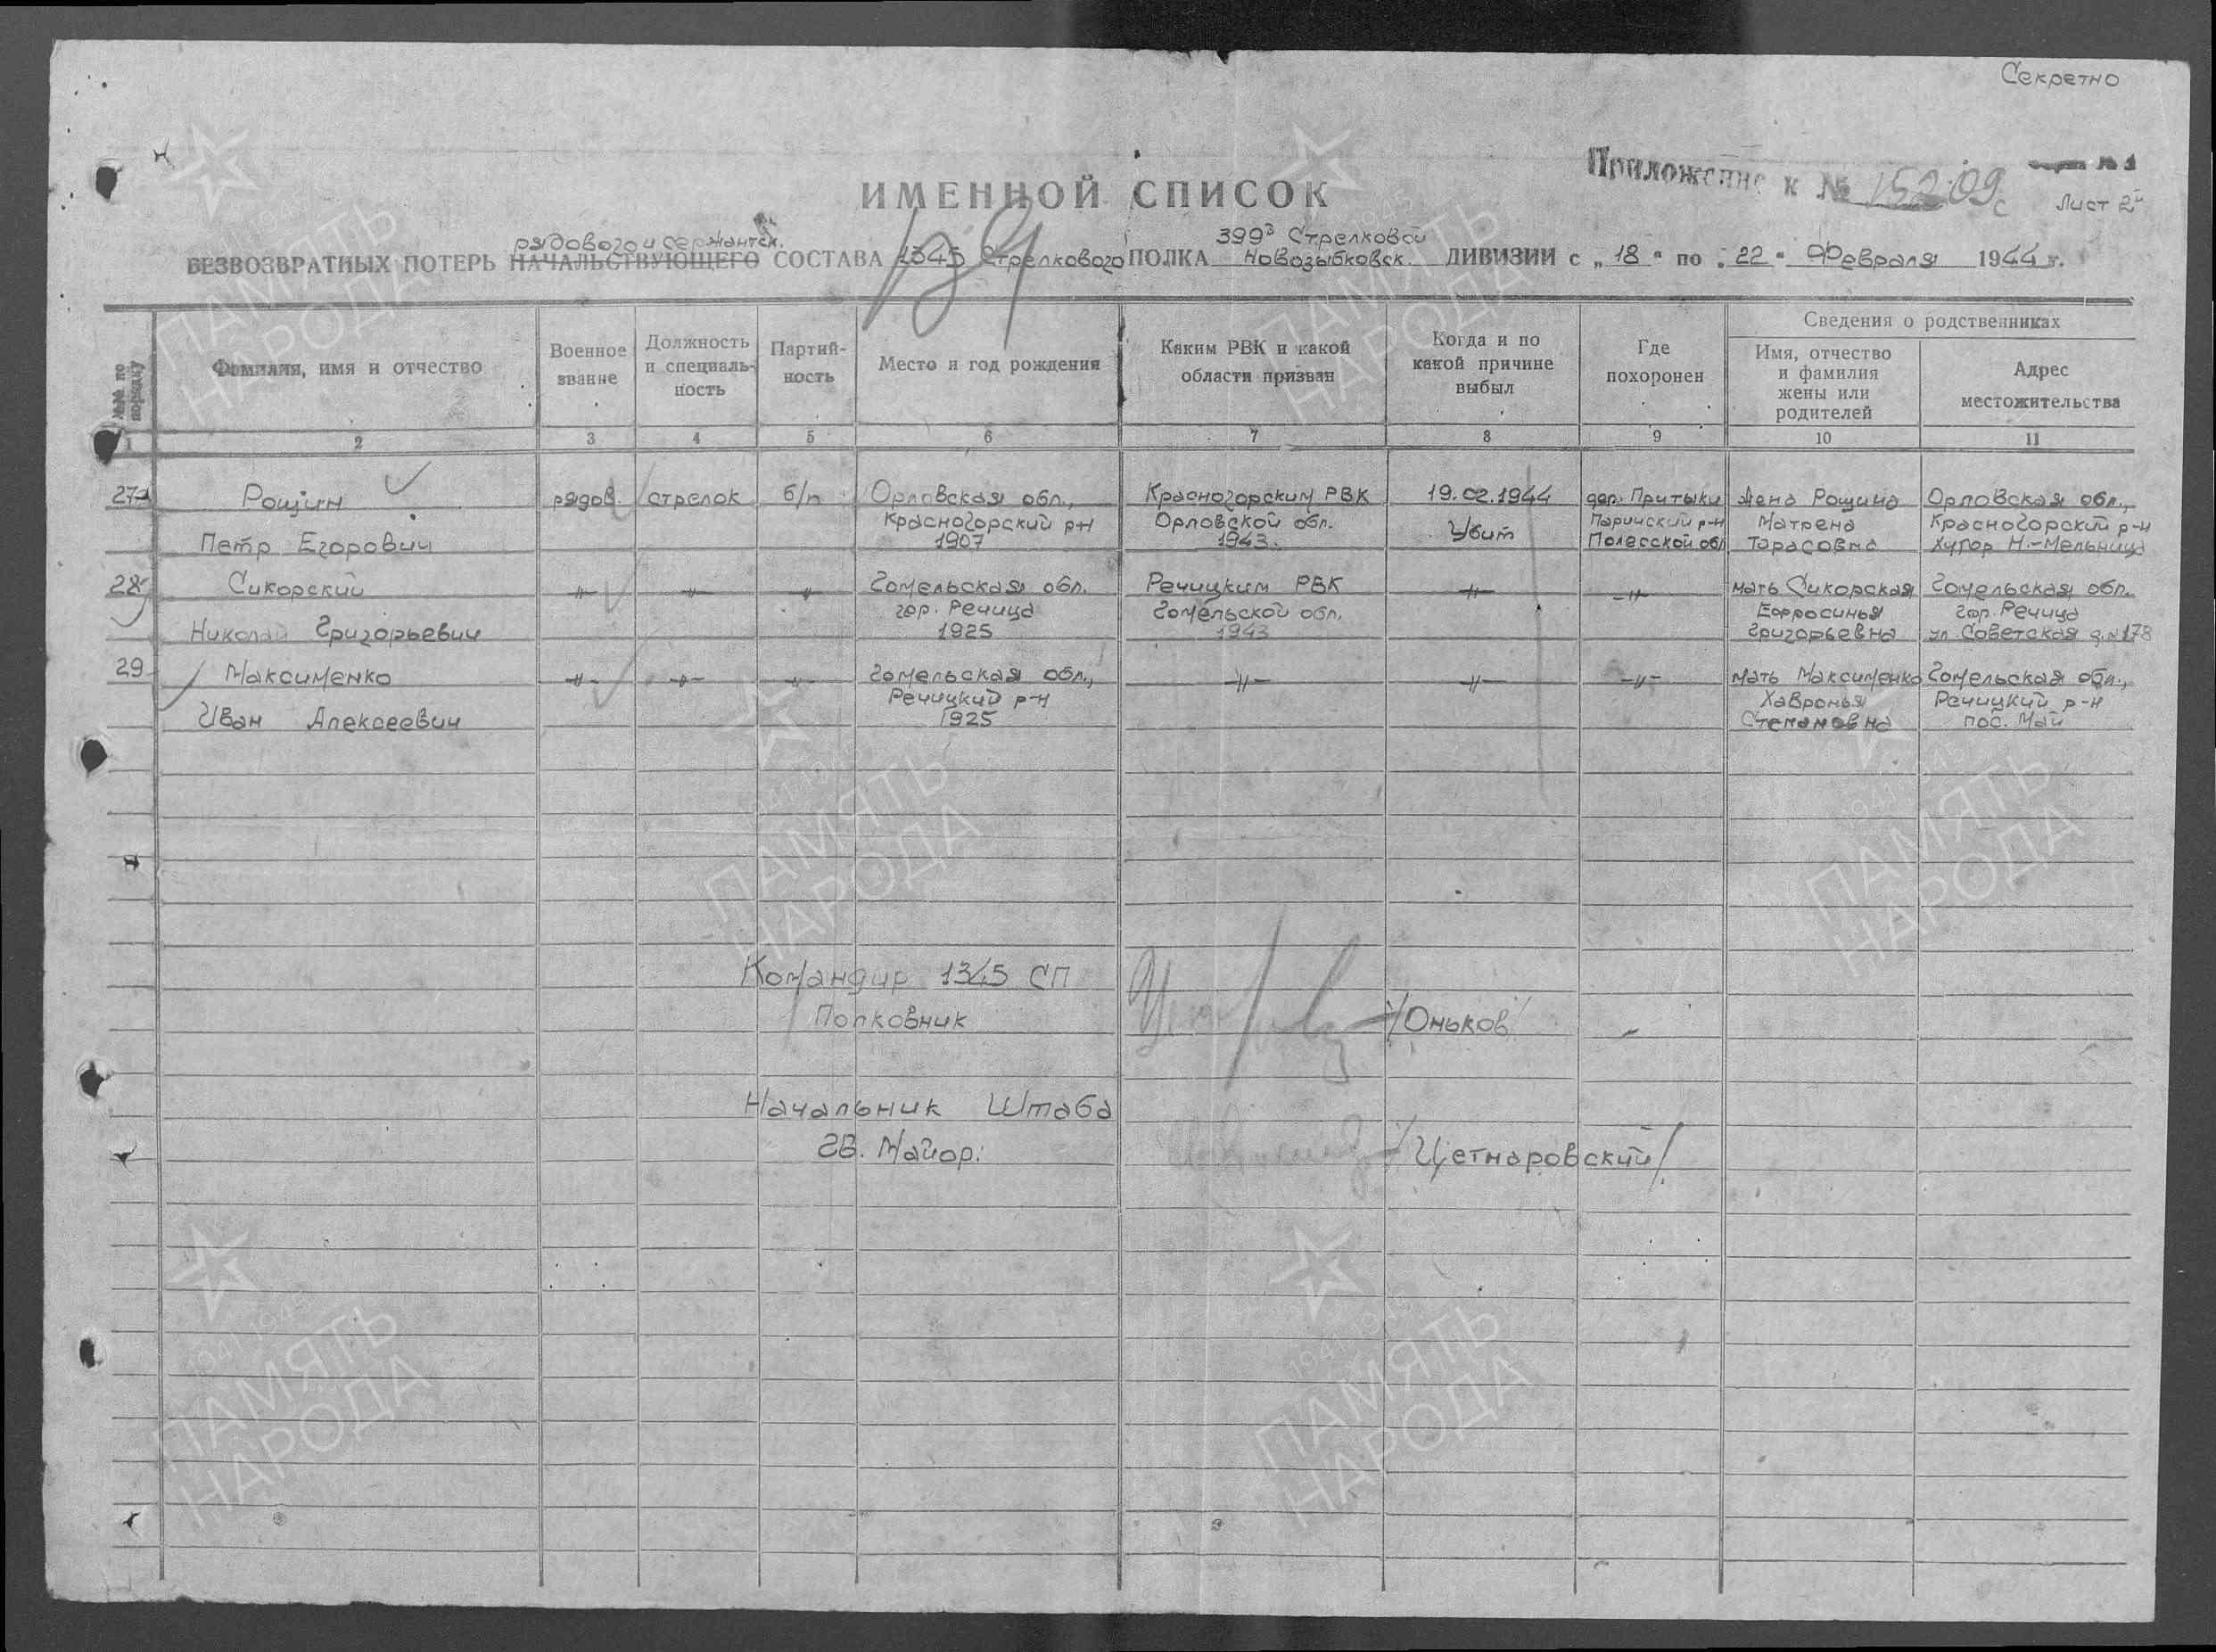 Секретно
Приложение к № 15209с
№ 1
Лист 2й
ИМЕННОЙ СПИСОК
рядового и сержантск. 399й Стрелковой
БЕЗВОЗВРАТНЫХ ПОТЕРЬ НАЧАЛЬСТВУЮЩЕГО СОСТАВА 1345 Стрелкового ПОЛКА Новозыбковск. ДИВИЗИИ с „18" по „22" Февраля 1944 г.
№№ по порядку
Фамилия, имя и отчество
Военное звание
Должность и специальность
Партийность
Место и год рождения
Каким РВК и какой области призван
Когда и по какой причине выбыл
Где похоронен
Сведения о родственниках
Имя, отчество и фамилия жены или родителей
Адрес местожительства
1 2 3 4 5 6 7 8 9 10 11
27 Рощин рядов. стрелок б/п Орловская обл., Красногорским РВК 19.02.1944 дер. Притыки Жена Рощина Орловская обл.,
Красногорский р-н Орловской обл. Убит Паричский р-н Матрена Красногорский р-н
Петр Егорович 1907 1943. Полесской обл Тарасовна Хутор Н.-Мельница
28 Сикорский -"- -"- -"- Гомельская обл. Речицким РВК -"- -"- мать Сикорская Гомельская обл.
гор. Речица Гомельской обл. Ефросинья гор. Речица
Николай Григорьевич 1925 1943 Григорьевна ул Советская д.№178
29 Максименко -"- -"- -"- Гомельская обл., -"- -"- -"- мать Максименко Гомельская обл.,
Речицкий р-н Хавронья Речицкий р-н
Иван Алексеевич 1925 Степановна пос. Май
Командир 1345 СП
Полковник /Оньков/
Начальник Штаба
гв. Майор: /Цетнаровский/
ПАМЯТЬ
НАРОДА
1941 1945
ПАМЯТЬ
НАРОДА
1941 1945
ПАМЯТЬ
НАРОДА
1941 1945
ПАМЯТЬ
НАРОДА
1941 1945
ПАМЯТЬ
НАРОДА
1941 1945
ПАМЯТЬ
НАРОДА